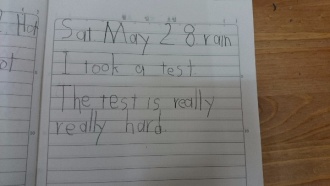 Hot
ot
Sat May 28 rain
I took a test.
The test is really
really hard.